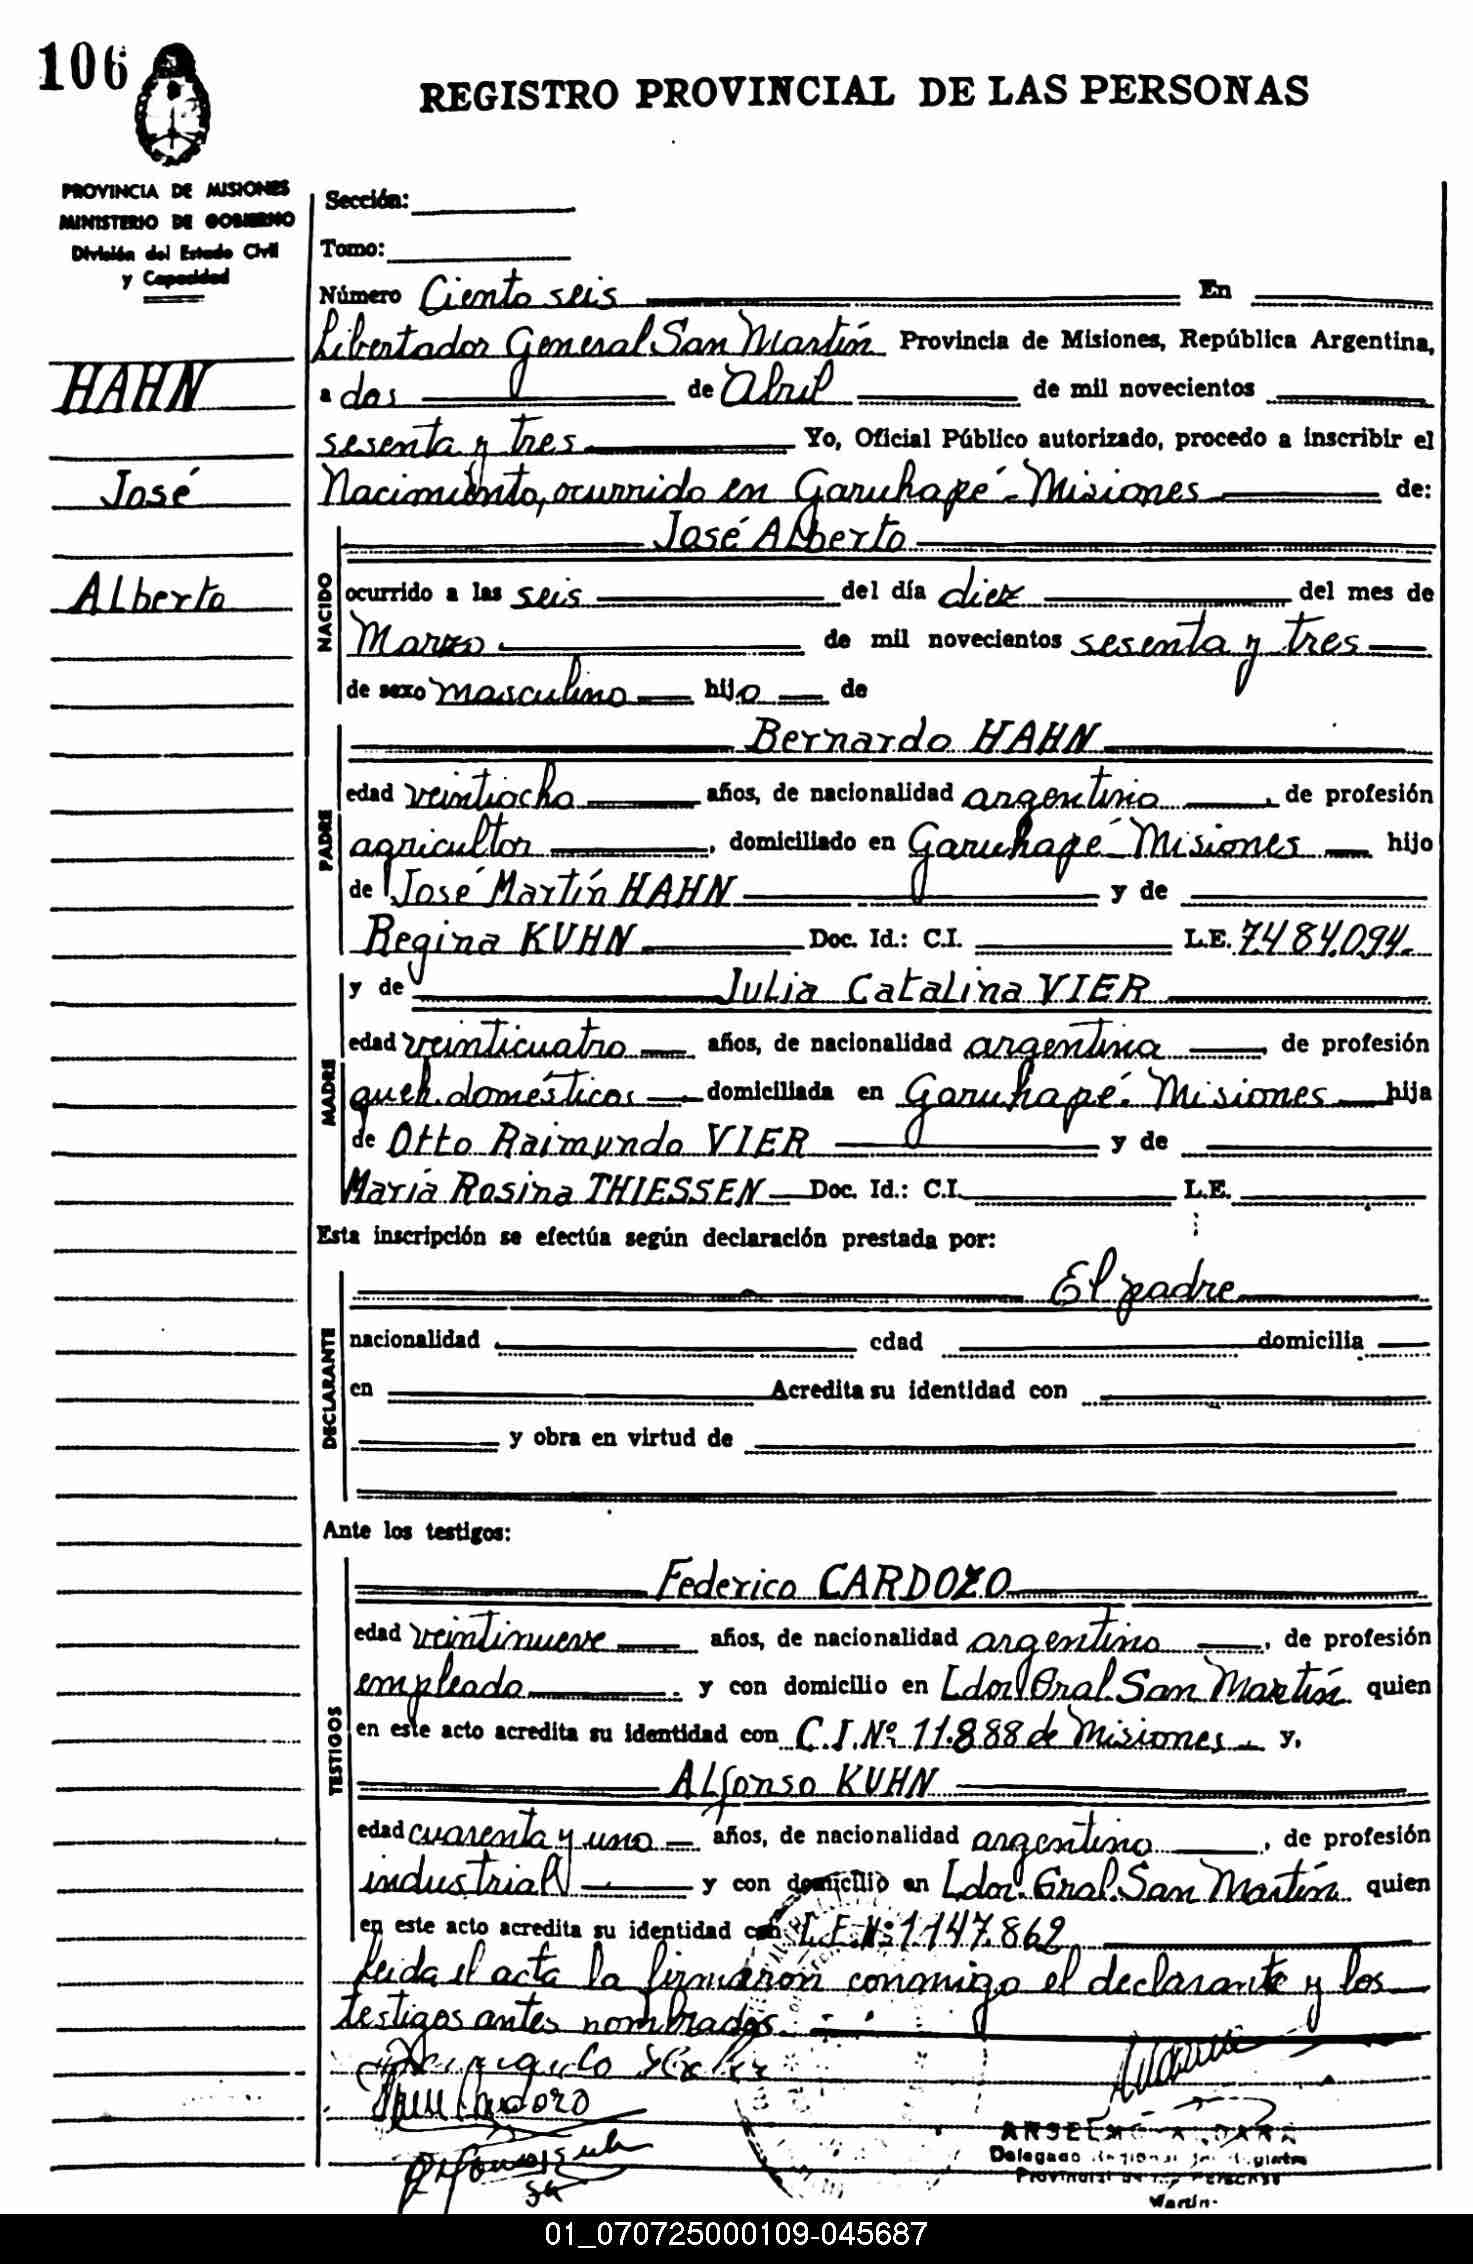 106
REGISTRO PROVINCIAL DE LAS PERSONAS
PROVINCIA DE MISIONES
MINISTERIO DE GOBIERNO
División del Estado Civil
y Capacidad
HAHN
José
Alberto
Sección:
Tomo:
Número Ciento seis En
Libertador General San Martín Provincia de Misiones, República Argentina,
a dos de Abril de mil novecientos
sesenta y tres Yo, Oficial Público autorizado, procedo a inscribir el
Nacimiento, ocurrido en Garuhapé-Misiones de:
NACIDO
José Alberto
ocurrido a las seis del día diez del mes de
Marzo de mil novecientos sesenta y tres
de sexo masculino hijo de
PADRE
Bernardo HAHN
edad veintiocho años, de nacionalidad argentino, de profesión
agricultor, domiciliado en Garuhapé-Misiones hijo
de José Martín HAHN y de
Regina KUHN Doc. Id.: C.I. L.E. 7.484.094.
MADRE
y de Julia Catalina VIER
edad veinticuatro años, de nacionalidad argentina, de profesión
queh. domésticos domiciliada en Garuhapé-Misiones hija
de Otto Raimundo VIER y de
María Rosina THIESSEN Doc. Id.: C.I. L.E.
Esta inscripción se efectúa según declaración prestada por:
DECLARANTE
El padre
nacionalidad edad domicilia
en Acredita su identidad con
y obra en virtud de
Ante los testigos:
TESTIGOS
Federico CARDOZO
edad veintinueve años, de nacionalidad argentino, de profesión
empleado y con domicilio en Ldor. Gral. San Martín quien
en este acto acredita su identidad con C.I. Nº 11.888 de Misiones y,
Alfonso KUHN
edad cuarenta y uno años, de nacionalidad argentino, de profesión
industrial y con domicilio en Ldor. Gral. San Martín quien
en este acto acredita su identidad con L.E. Nº 1.147.862
Leida el acta la firmaron conmigo el declarante y los
testigos antes nombrados.
ANSELMO
Delegado Regional
Provincial de las Personas
Martín.
01_070725000109-045687